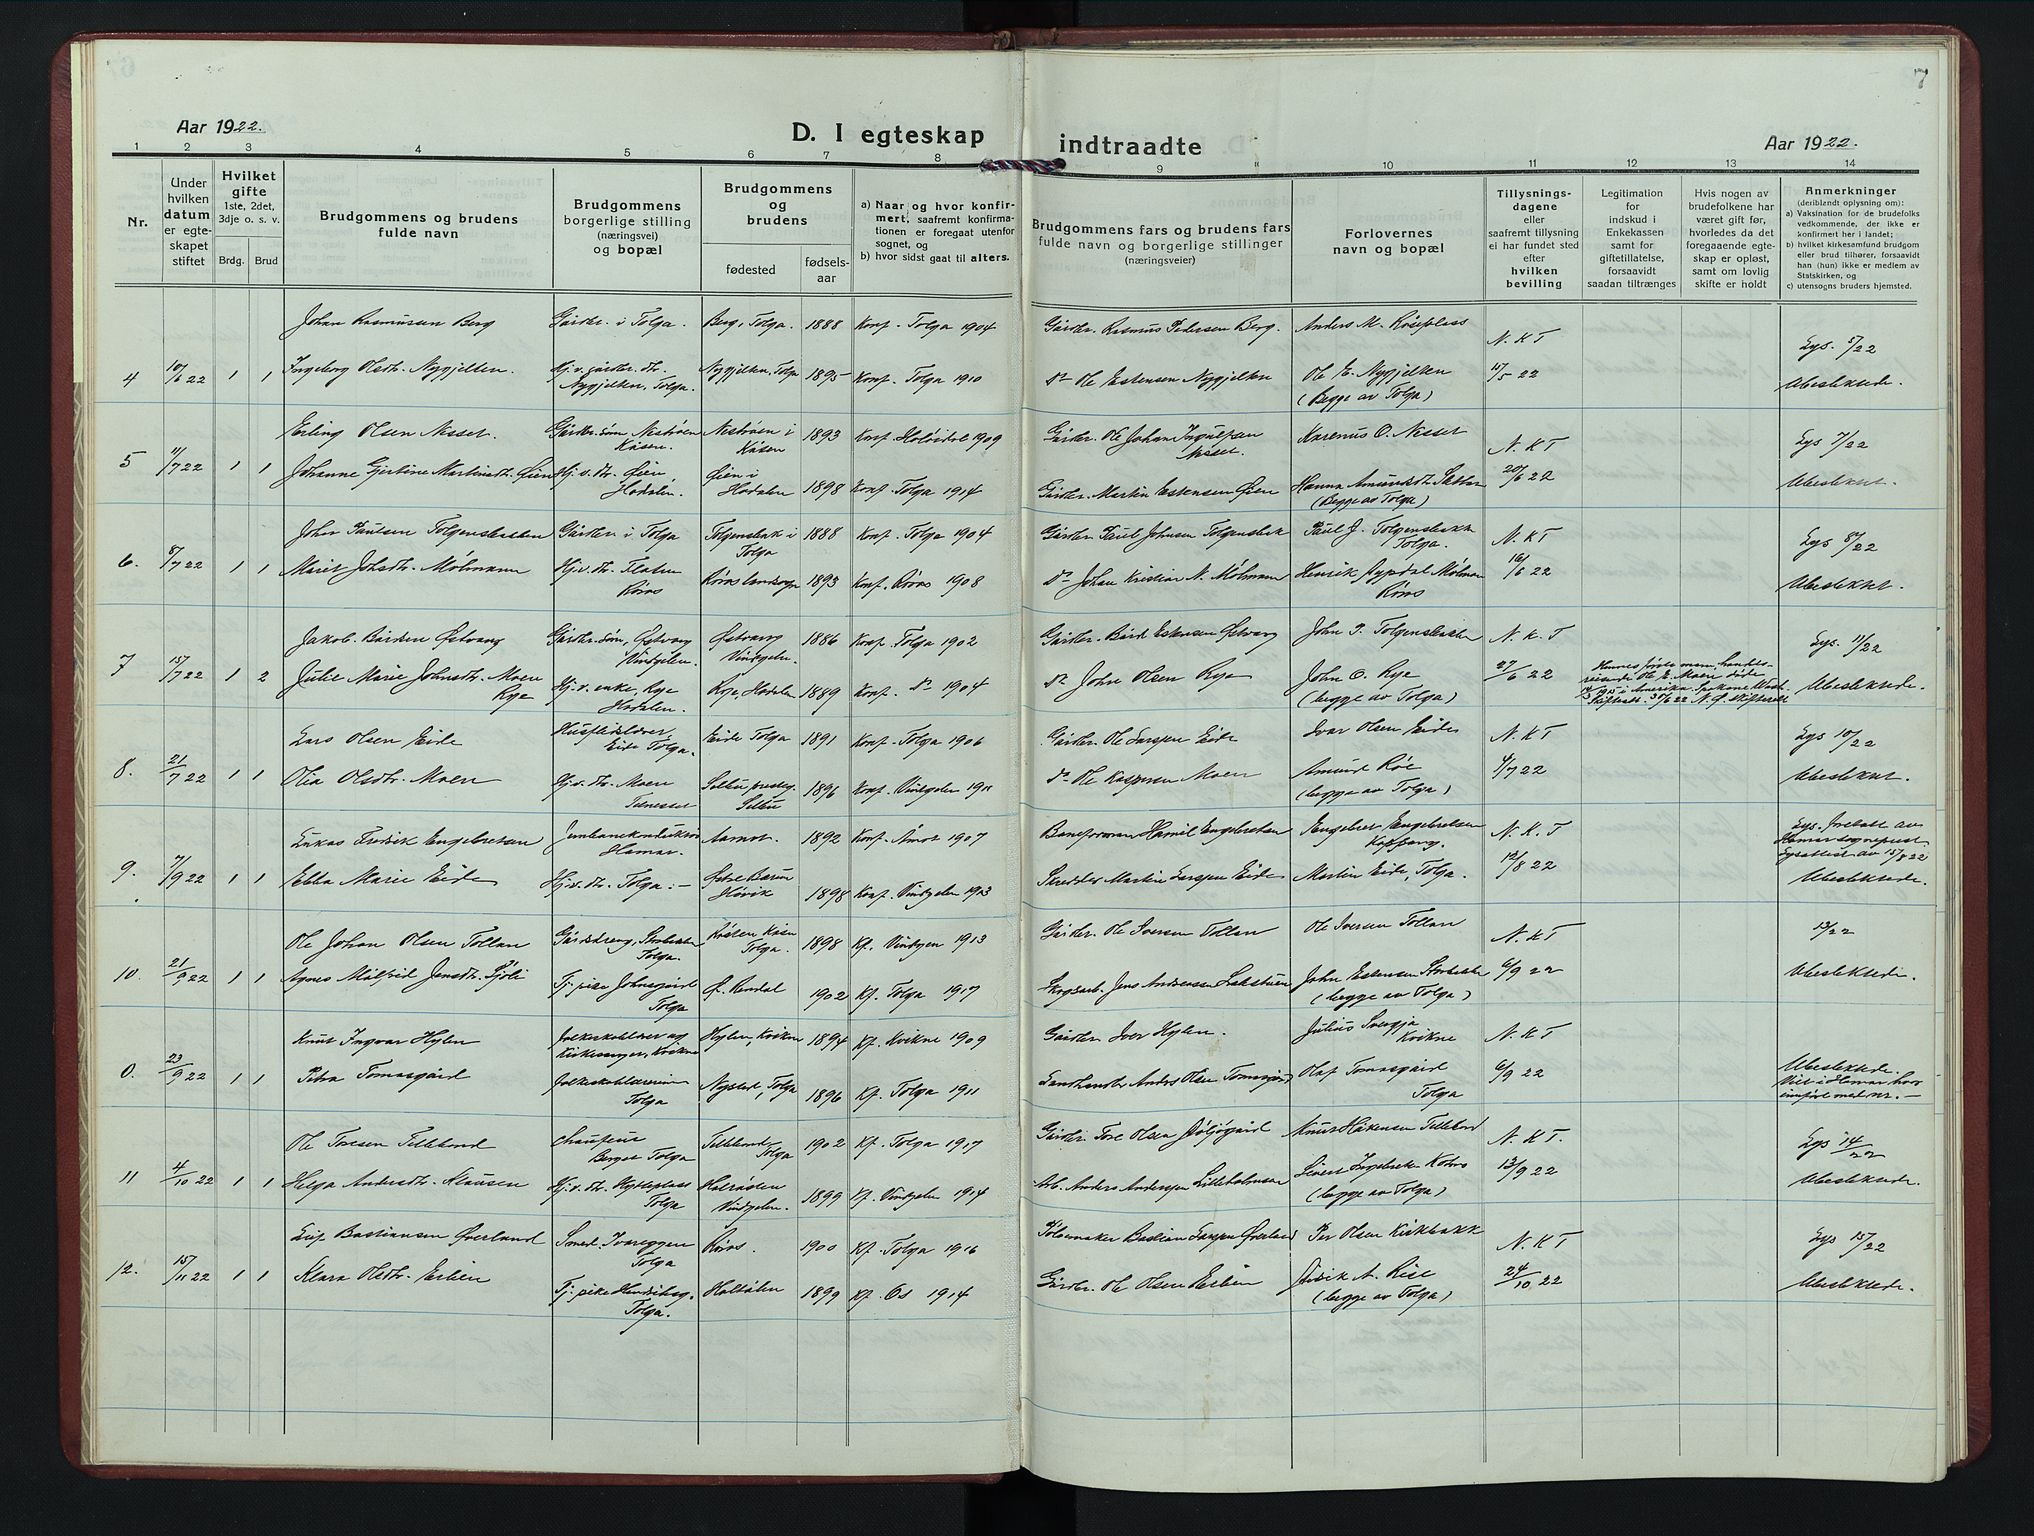 7
Aar 1922.
D. I egteskap
indtraadte
Aar 1922.
1 2 3 4 5 6 7 8 9 10 11 12 13 14
Nr.
Under hvilken datum er egteskapet stiftet
Hvilket gifte
1ste, 2det, 3dje o. s. v.
Brdg. Brud
Brudgommens og brudens fulde navn
Brudgommens borgerlige stilling (næringsvei) og bopæl
Brudgommens og brudens
fødested
fødselsaar
a) Naar og hvor konfirmert, saafremt konfirmationen er foregaat utenfor sognet, og
b) hvor sidst gaat til alters.
Brudgommens fars og brudens fars fulde navn og borgerlige stillinger (næringsveier)
Forlovernes navn og bopæl
Tillysningsdagene eller saafremt tillysning ei har fundet sted efter hvilken bevilling
Legitimation for indskud i Enkekassen samt for giftetillatelse, forsaavidt saadan tiltrænges
Hvis nogen av brudefolkene har været gift før, hvorledes da det foregaaende egteskap er opløst, samt om lovlig skifte er holdt
Anmerkninger
(deriblandt oplysning om):
a) Vaksination for de brudefolks vedkommende, der ikke er konfirmert her i landet;
b) hvilket kirkesamfund brudgom eller brud tilhører, forsaavidt han (hun) ikke er medlem av Statskirken, og
c) utensogns bruders hjemsted.
Johan Rasmussen Berg Gårdbr. i Tolga. Berg, Tolga. 1888 Konf. Tolga 1904 Gårdbr. Rasmus Pedersen Berg. Anders M. Röseplass N. K T Lys. 5/22
4 10/6 22 1 1 Ingeborg Olsdtr. Nygjelten. Hj.v. gårdbr. dtr. Nygjelten, Tolga. Nygjelten, Tolga 1895 Konf. Tolga 1910 do Ole Estensen Nygjelten Ole E. Nygjelten (Begge av Tolga) 15/5 22 Ubeslektede.
Erling Olsen Nesset. Gårdbr. søn Nestrøen Kåsen. Nestrøen i Kåsen 1893 Konf. Holöidal 1909 Gårdbr. Ole Johan Ingulfsen Nesset. Karenus O. Nesset N. K T Lys 7/22
5 11/7 22 1 1 Johanne Gjertine Martinsdtr. Øien Hj.v. dtr. Øien Hodalen. Øien i Hodalen 1898 Konf. Tolga 1914 Gårdbr. Martin Estensen Øien Hanna Amundsdtr. (Begge av Tolga) 20/6 22 Ubeslektet.
John Paulsen Tolgensbakken Gårdbr. i Tolga Tolgensbak i Tolga 1888 Konf. Tolga 1904 Gårdbr. Paul Johnsen Tolgensbak Paul J. Tolgensbakk Tolga. N. K T Lys 8/22
6. 8/7 22 1 1 Marit Johsdtr. Mölmann Hj.v. dtr. Flaten Röros Röros landsogn 1893 Konf. Röros 1908 do Johan Kristian N. Mölmann Henrik Mölman Röros 16/6 22 Ubeslektet.
Jakob Bårdsen Østvang Gårdbr. søn, Østvang Vindgelen. Østvang Vindgelen. 1886 Konf. Tolga 1902 Gårdbr. Bård Estensen Østvang John P. Tolgensbakken N. K. T Lys. 11/22
7 15/7 22 1 2 Julie Marie Johnsdtr. Moen Rye Hj.v. enke, Rye Hodalen. Rye, Hodalen 1889 Konf. do 1904 do John Olsen Rye John O. Rye (begge av Tolga) 27/6 22 Hennes første mann, handelsreisende Ole E. Moen døde 1915 i Amerika Spokane Wash. Ubeslektede.
Lars Olsen Eide Husflidslærer, Eide Tolga. Eide Tolga 1891 Konf. Tolga 1906 Gårdbr. Ole Larssen Eide Ivar Olsen Eide N. K T Lys 10/22
8. 21/7 22 1 1 Olia Olsdtr. Moen Hj.v. dtr. Moen Telnesset Selbu prestg. Selbu 1896 Konf. Vindgelen 1911 do Ole Kaspersen Moen Amund Röe (begge av Tolga) 4/7 22 Ubeslektet.
Lukas Fredrik Engebretsen Jernbanekonduktør Hamar. Aamot. 1892 Konf. Åmot 1907 Baneformann Hamil Engebretsen Engebret Engebretsen Koppang. N. K. T Lys. foretatt av Hamar sogneprest Lysattest av 15/8 22
9. 7/9 22 1 1 Ebba Marie Eide Hj.v. dtr. Tolga. Østre Bærum Høvik 1898 Konf. Vindgelen 1913 Skredder Martin Larssen Eide Martin Eide, Tolga. 12/8 22 Ubeslektede.
Ole Johan Olsen Tollan Gårdsdreng, Storbekken Tolga. Kåsen Tolga. 1898 Kf. Vindgen 1913 Gårdbr. Ole Iversen Tollan Ole Iversen Tollan N. K T 13/22
10. 21/9 22 1 1 Agnes Målfrid Jensdtr. Sjöli Tj. pike Johnsgård Tolga Ø. Rendal 1902 Kf. Tolga 1917 Skogsarb. Jens Anderssen Lakstuen John Estensen Storbekken (begge av Tolga) 6/9 22 Ubeslektede.
Knut Ingvar Hylen Folkeskolelærer og Kirkesanger, Kvikne Hylen, Kvikne 1894 Kf. Kvikne 1909 Gårdbr. Iver Hylen. Julius Svergja Kvikne N. K T
0. 23/9 22 1 1 Petra Tomasgård Folkeskolelærerinne Tolga Nystad, Tolga 1896 Kf. Tolga 1911 Landhandl. Anders Olsen Tomasgård Olaf Tomasgård Tolga 6/9 22 Ubeslektede. Viet i Hamar hvor innført med nr. —
Ole Toresen Tillebond Chauffeur Berget Tolga Tillebond Tolga 1902 Kf. Tolga 1917 Gårdbr. Tore Olsen Nils Håkensen Tillebond N. K T. Lys 14/22
11 4/10 22 1 1 Helga Andersdtr. Klausen Hj.v. dtr. Hytteplass Tolga Holröelen Vindgelen. 1899 Kf. Vindgelen 1914 Arb. Anders Anderssen Lilleholmen Sivert Ingebrektsen (begge av Tolga) 13/9 22 Ubeslektede.
Leif Bastiansen Øverland Smed. Ivareggen Tolga Röros. 1900 Kf. Tolga 1916 Bastian Larssen Øverland Per Olsen Kirkbakk N. K T Lys 15/22
12. 15/11 22 1 1 Klara Olsdtr. Erlien Tj. pike Tolga. Holtålen 1899 Kf. Os 1914 Gårdbr. Ole Olsen Erlien A. Rise (begge av Tolga) 24/10 22 Ubeslektede.